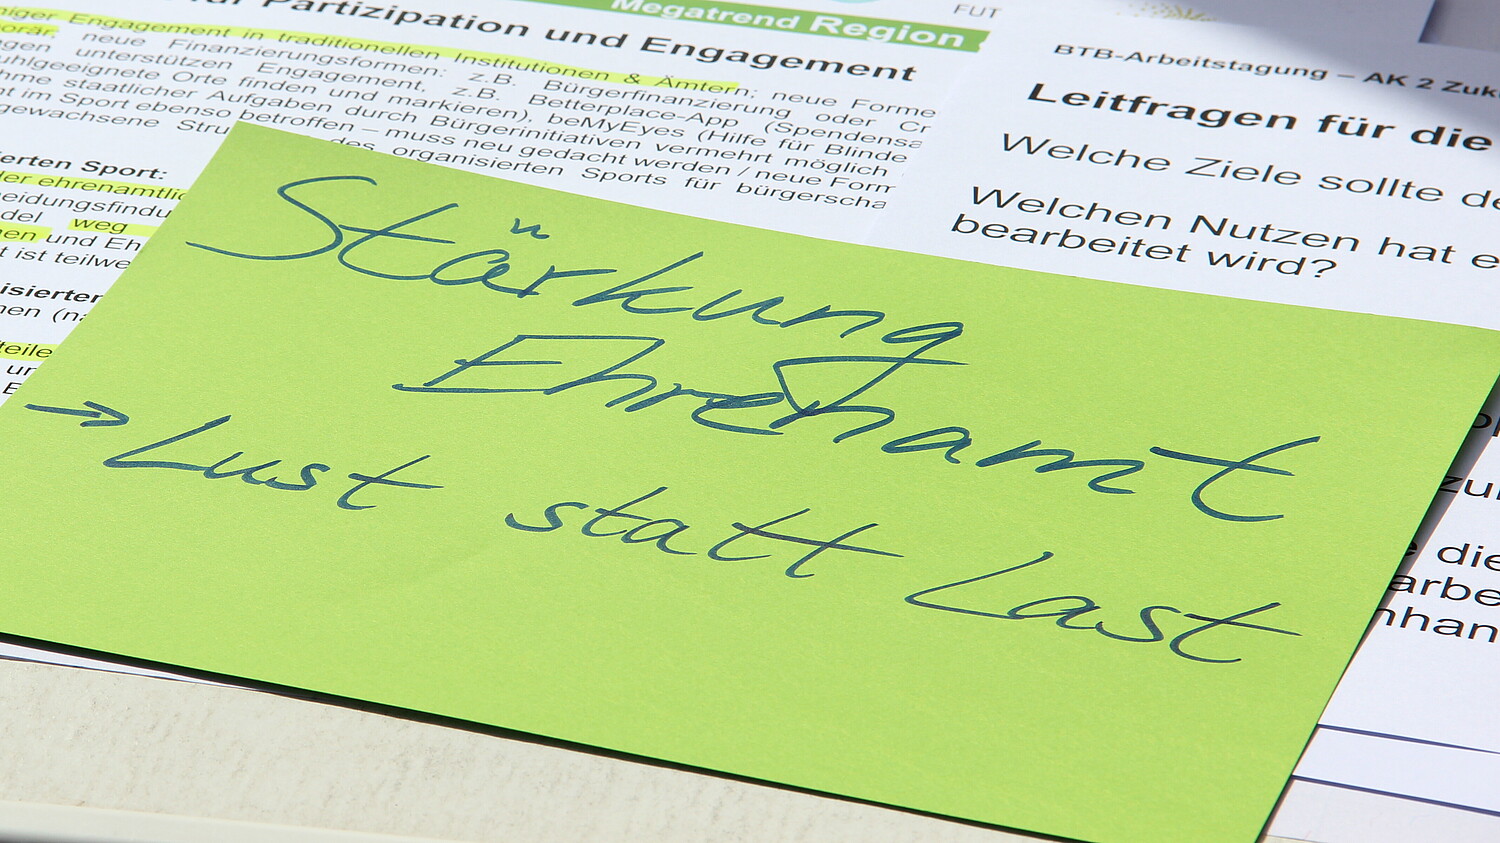 Partizipation und Engagement
Megatrend Region
FUT
Engagement in traditionellen Institutionen & Ämtern; neue Forme
neue Finanzierungsformen: z.B. Bürgerfinanzierung oder Cr
unterstützen Engagement, z.B. Betterplace-App (Spendensa
uhlgeeignete Orte finden und markieren), beMyEyes (Hilfe für Blinde
hme staatlicher Aufgaben durch Bürgerinitiativen vermehrt möglich
nt im Sport ebenso betroffen – muss neu gedacht werden / neue Form
gewachsene Stru des organisierten Sports für bürgerscha
ierten Sport:
der ehrenamtlic
heidungsfindu
ndel weg
nen und Eh
t ist teilwe
isierter
nen (na
teile
ur
E
BTB-Arbeitstagung – AK 2 Zuk
Leitfragen für die
Welche Ziele sollte de
Welchen Nutzen hat e
bearbeitet wird?
Stärkung
Ehrenamt
→ Lust statt Last
zu
die
arbe
nhan